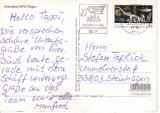 Ostseebad Binz/Rügen
Hallo Tappi,
wie versprochen
schöne Urlaubs-
grüße von hier.
Sind heute ge-
rade mit dem
Schiff unterwegs.
Grüße an das
Team sowie alle
Manfred
Herrn
Stefan Taplick
33803 Steinhagen